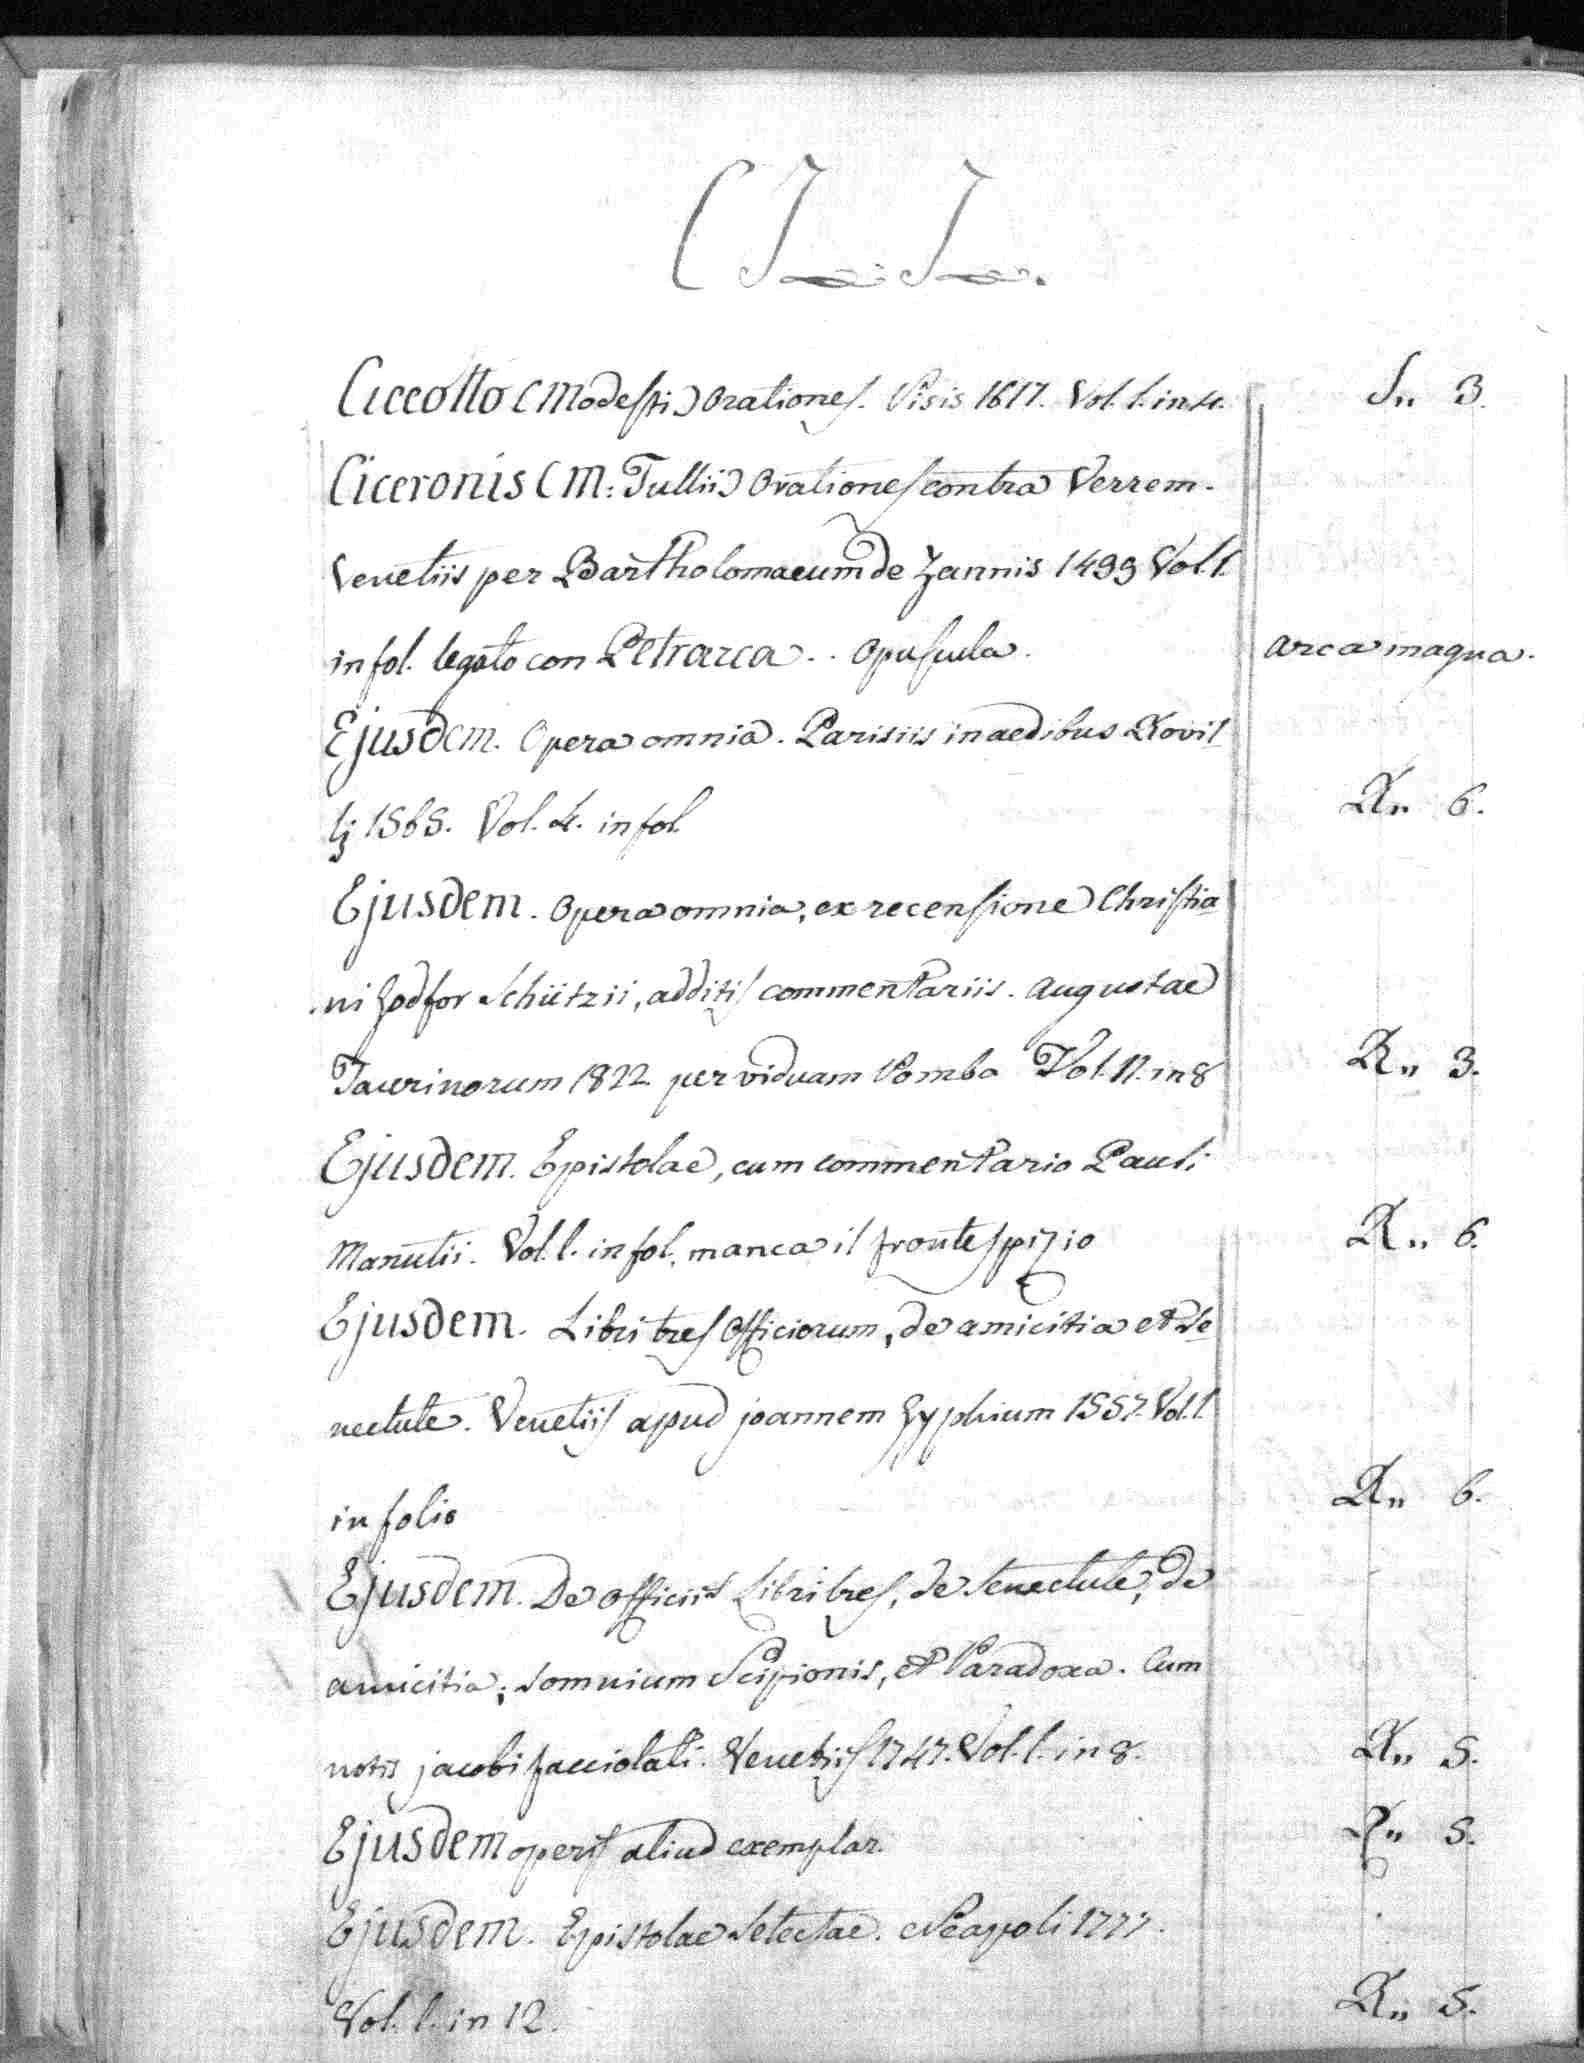 C I. I.
Ciccotto (Modesti) Orationes. Pisis 1617. Vol. 1. in 4. S,, 3.
Ciceronis (M: Tullii) Orationes contra Verrem.
Venetiis per Bartholomaeum de Zannis 1499 Vol. 1.
in fol. legato con Petrarca . . Opuscula. arca magna.
Ejusdem. Opera omnia. Parisiis in aedibus Rovil
lj 1565. Vol. 4. in fol. R,, 6.
Ejusdem. Opera omnia, ex recensione Christia
ni Godfor Schützii, additis commentariis. Augustae
Taurinorum 1822 per viduam Pomba Vol. 11. in 8 R,, 3.
Ejusdem. Epistolae, cum commentario Pauli
Manutii. Vol. 1. in fol. manca il frontespizio R,, 6.
Ejusdem. Libri tres Officiorum, de amicitia et Se
nectute. Venetiis apud joannem Gyphium 1557. Vol. 1.
in folio R,, 6.
Ejusdem. De officiis Libri tres, de Senectute, de
amicitia; somnium Scipionis, et Paradoxa. Cum
notis jacobi facciolati. Venetiis 1747. Vol. 1. in 8. R,, 5.
Ejusdem operis aliud exemplar. R,, 5.
Ejusdem. Epistolae Selectae. Neapoli 1777.
Vol. 1. in 12. R,, 5.